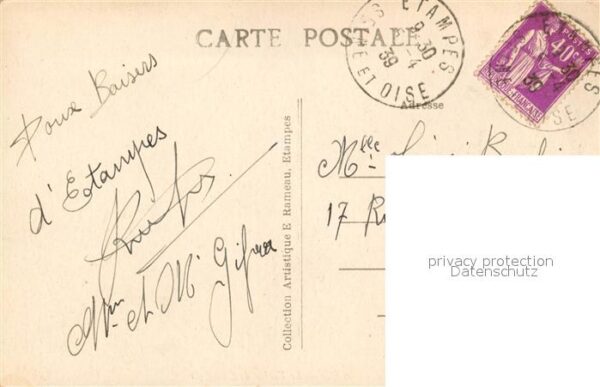 CARTE POSTALE
ETAMPES
8-30
-4
39
SNE ET OISE
40c
POSTES
REPUBLIQUE FRANCAISE
Adresse
Doux Baisers
d'Estampes
Mme et Mr
Collection Artistique E. Rameau, Etampes
Mlle
17 R
privacy protection
Datenschutz